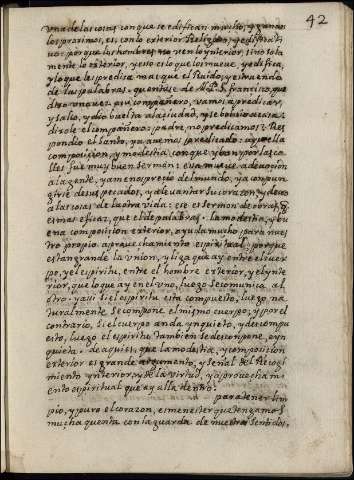 42
una de las cosas con que se edifican mucho, y ganan
los proximos, es con lo exterior Religioso, y edificati
uo: porque los hombres no uen lo ynterior, sino sola
mente lo exterior, y esso es lo que los mueue, y edifica,
y lo que les predica mas que el Ruido, y estruendo
de las palabras. quentase de N. P. S. francisco, que
dixo una uez a su compañero, uamos a predicar,
y salio, y dio buelta a la siudad, y se boluio a casa:
dixole el compañero: padre, no predicamos? Res
pondio el santo, ya auemos predicado: aquella
composicion, y modestia con que yban por las ca
lles fue muy buen sermon: essa mueue a deuocion
a la gente, y a menosprecio del mundo, y a compun
girse de sus pecados, y a leuantar su corazon, y deseo
a las cosas de la otra uida: ese es sermon de obra, q̃
es mas eficaz, que el de palabras. la modestia, y bu
ena composicion exterior, ayuda mucho para nues
tro propio aprouechamiento espiritual: porque
es tan grande la union, y liga que ay entre el cuer
po, y el espiritu, entre el hombre exterior, y el ynte
rior, que lo que ay en el uno, luego se comunica al
otro. y assi si el espiritu esta compuesto, luego na
turalmente se compone el mismo cuerpo; y por el
contrario, si el cuerpo anda ynquieto, y descompu
esto, luego el espiritu tambien se descompone, e yn
quieta. de aqui es, que la modestia, y composicion
exterior es grande argumento, y señal del Recogi
miento ynterior, y de la uirtud, y aprouechami
ento espiritual que ay alla dentro.
para tener lim
pio, y puro el corazon, es menester que tengamos
mucha quenta con la guarda de nuestros sentidos,